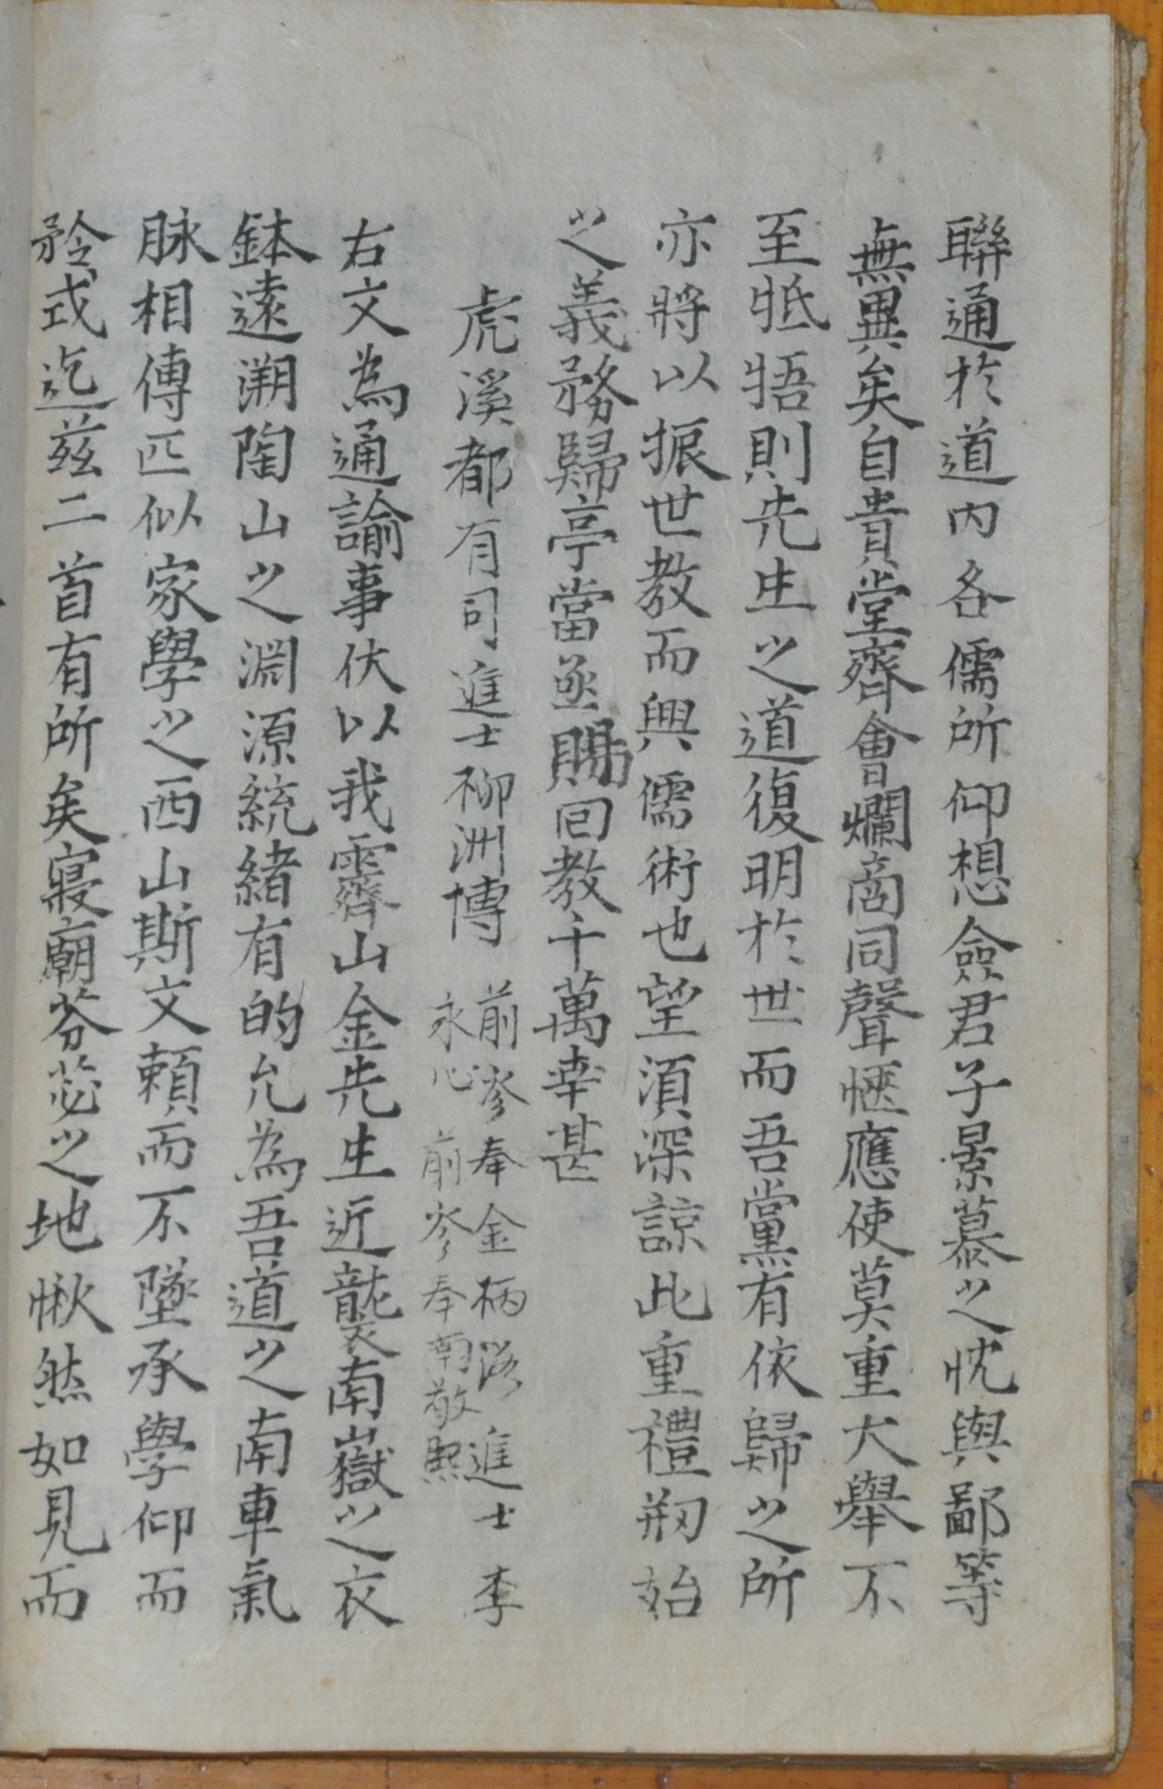 聯通於道內各儒所仰想僉君子景慕之忱與鄙等
無異矣自貴堂齊會爛啇同聲愜應使莫重大舉不
至牴牾則先生之道復明於世而吾黨有依歸之所
亦將以振世教而興儒術也望湏深諒此重禮刱始
之義務歸亭當亟賜回教千萬幸甚
虎溪都有司進士柳洲博
前參奉金柄 進士李
永 前參奉南敬熙
右文為通諭事伏以我霽山金先生近襲南嶽之衣
鉢遠溯陶山之淵源統緒有的允為吾道之南車氣
脉相傳匹似家學之西山斯文頼而不墜承學仰而
矜式迄茲二首有所矣寢廟芬苾之地愀然如見而